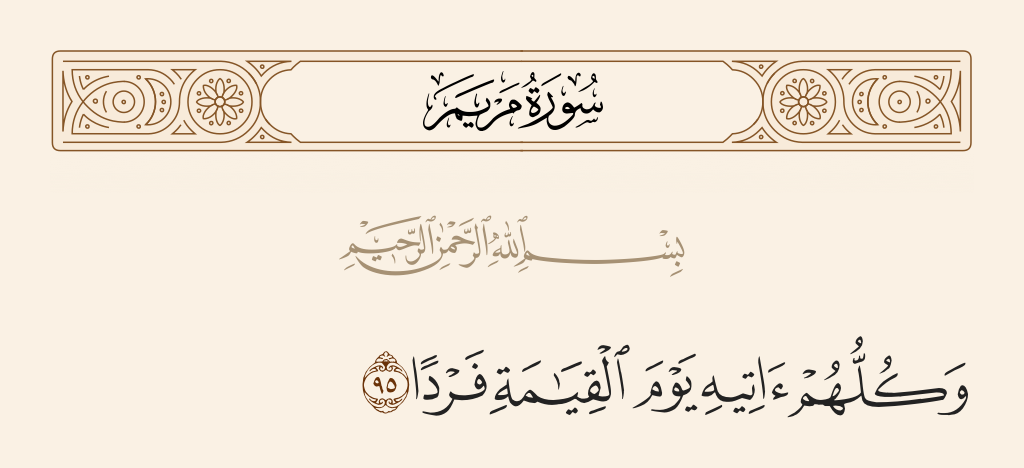 سُورَةُ مَرْيَمَ
بِسْمِ ٱللَّهِ ٱلرَّحْمَٰنِ ٱلرَّحِيمِ
وَكُلُّهُمْ ءَاتِيهِ يَوْمَ ٱلْقِيَٰمَةِ فَرْدًا ٩٥